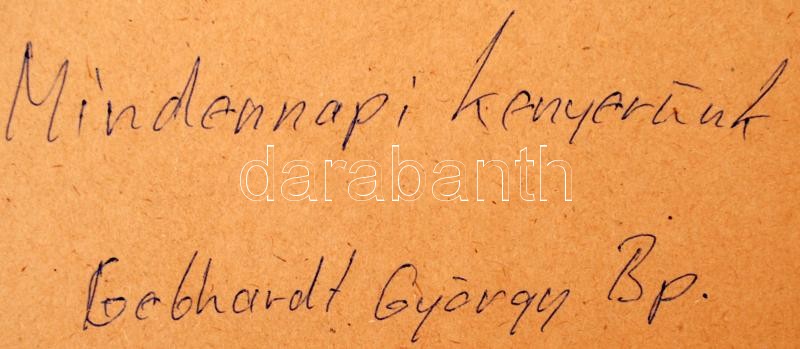 Mindennapi kenyerünk
darabanth
Gebhardt György Bp.